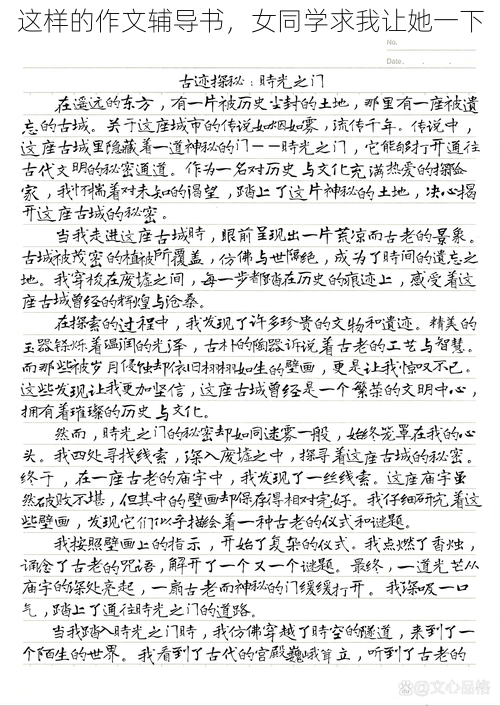 这样的作文辅导书，女同学求我让她一下
No.
Date. . .
古迹探秘：時光之门
在遥远的东方，有一片被历史尘封的土地，那里有一座被遗
忘的古城。关于这座城市的传说如烟如雾，流传千年。传说中，
这座古城里隐藏着一道神秘的门——時光之门，它能够打开通往
古代文明的秘密通道。作为一名对历史与文化充满热爱的探险
家，我怀揣着对未知的渴望，踏上了这片神秘的土地，决心揭
开这座古城的秘密。
当我走进这座古城時，眼前呈现出一片荒凉而古老的景象。
古城被茂密的植被所覆盖，仿佛与世隔绝，成为了時间的遗忘之
地。我穿梭在废墟之间，每一步都踏在历史的痕迹上，感受着这
座古城曾经的辉煌与沧桑。
在探索的过程中，我发现了许多珍贵的文物和遗迹。精美的
玉器铄烁着温润的光泽，古朴的陶器诉说着古老的工艺与智慧。
而那些被岁月侵蚀却依旧栩栩如生的壁画，更是让我惊叹不已。
这些发现让我更加坚信，这座古城曾经是一个繁荣的文明中心，
拥有着璀璨的历史与文化。
然而，時光之门的秘密却如同迷雾一般，始终笼罩在我的心
头。我四处寻找线索，深入废墟之中，探寻着这座古城的秘密。
终于，在一座古老的庙宇中，我发现了一丝线索。这座庙宇虽
然破败不堪，但其中的壁画却保存得相对完好。我仔细研究着这
些壁画，发现它们似乎描绘着一种古老的仪式和谜题。
我按照壁画上的指示，开始了复杂的仪式。我点燃了香烛，
诵念了古老的咒语，解开了一个又一个谜题。最终，一道光芒从
庙宇的深处亮起，一扇古老而神秘的门缓缓打开。我深吸一口
气，踏上了通往時光之门的道路。
当我踏入時光之门時，我仿佛穿越了時空的隧道，来到了一
个陌生的世界。我看到了古代的宫殿巍峨耸立，听到了古老的
@文心品格